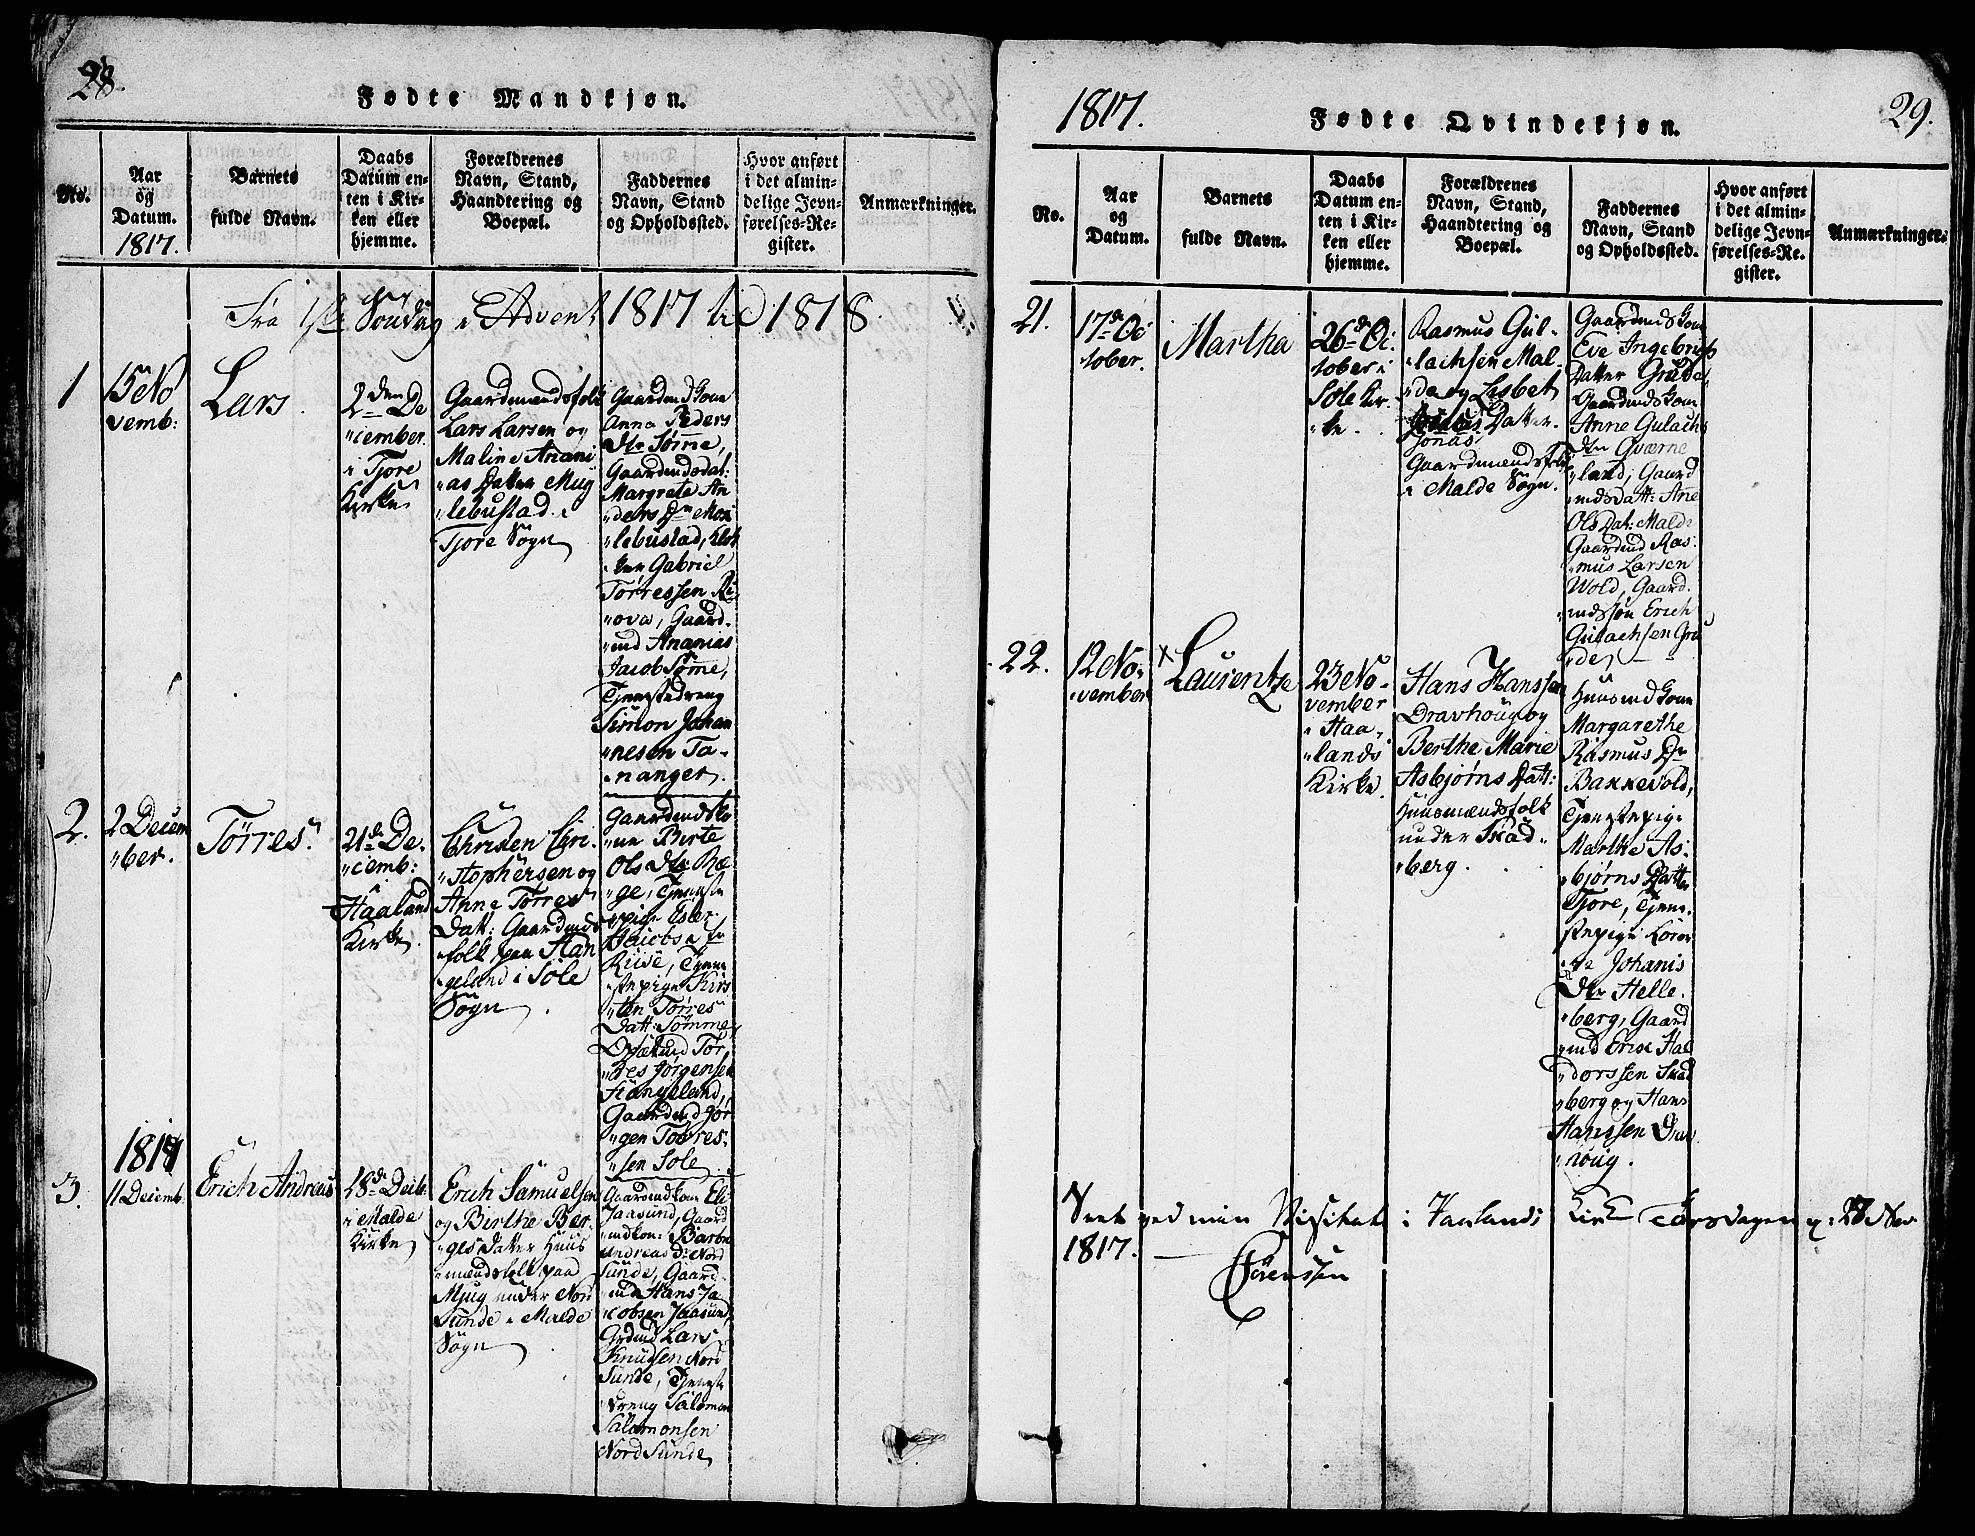 28.
Fødte Mandkjøn.
No.
Aar
og
Datum.
1817.
Barnets
fulde Navn.
Daabs
Datum en-
ten i Kir-
ken eller
hjemme.
Forældrenes
Navn, Stand,
Haandtering og
Boepæl.
Faddernes
Navn, Stand
og Opholdssted.
Hvor anført
i det almin-
delige Jevn-
førelses-Re-
gister.
Anmærkninger.
Fra 1ste Søndag i Advent 1817 til 1818.
1
15 No
vemb:
Lars
2den De
"cember
i Tjore
Kirke
Gaardmændsfolk
Lars Larsen og
Maline Anani
"as Datter Myg
"lebustad i
Tjore Sogn
Gaardmd Kone
Anna Peders
Dtr Sømme,
Gaardmdsdat:
Margrete An
"ders Dtr
"lebustad, Klok
"ker Gabriel
Tørressen
"ova, Gaard-
"md Ananias
Jacobs Sømme,
Tjenestedreng
Simon Johan
"nesen Ta-
"nanger.
2.
2 Decem
"ber.
Tørres.
21de De-
"cemb:
i
Haaland
Kirke.
Christen Chri-
"stophersen og
Anne Tørres
Datt: Gaardmds
"folk paa Stan
"geland i Sole
Sogn
Gaardmdsko
"ne Birte
Ols Dtr Ræ
"ge, Tjeneste
"pige Ester
Jacobs
Riise, Tjene
"stepige Kirs
"ten Tørres
Datt: Sømme,
Tør
"res Jørgensen
Stangeland,
Gaardmd Jør
"gen Tørres-
"sen Sole
3.
1817
11 Decemb.
Erich Andreas
28de Decbr.
i Malde
Kirke
Erich Samuelsen
og Birthe Ber-
"ges Datter Huus
"mændsfolk paa
Myug under Nord
Sunde i Malde
Sogn
Gaardmdkone Eli
Jaasund, Gaard
"mdkon: Barbr
Andreas Dr Nord
Sunde, Gaard-
"md Hans Ja
"cobsen Jaasund,
Grdmd Lars
Knudsen Nord
Sunde, Tjeneste
"dreng Salomon
Salomonsen
Nord Sunde
1817.
Fødte Qvindekjøn.
29.
No.
Aar
og
Datum.
Barnets
fulde Navn.
Daabs
Datum en-
ten i Kir-
ken eller
hjemme.
Forældrenes
Navn, Stand,
Haandtering og
Boepæl.
Faddernes
Navn, Stand
og Opholdssted.
Hvor anført
i det almin-
delige Jevn-
førelses-Re-
gister.
Anmærkninger.
21.
17de Oc
tober.
Martha
26de Oc
tober i
Sole Kir-
"ke.
Rasmus Gul-
"lachsen Mal-
"de og Lisbet
Jonas Datter.
Gaardmændsfolk
i Malde Sogn.
Gaardmds Kone
Eve Ingebrigts
Datter Grude,
Gaardmds Kone
Anne Gulachs
Dtr Qværne
"land, Gaard
"mdsdatt: Ane
Ols Dat: Malde
Gaardmd Ras-
"mus Larsen
Wold, Gaard-
"mdssøn Erich
Gulachsen Gru
"de.
22.
12 No-
"vember
x Laurentze
23 No-
vember
i Haa-
"lands
Kirke.
Hans Hanssen
Dravhoug og
Berthe Marie
Asbjørns Datt:
Huusmændsfolk
under Skad-
"berg.
Huusmdkone
Margarethe
Rasmus Dr
Bakkevold,
Tjenstepige
Marthe As-
"bjørns Datter
Tjore, Tjene-
stepige
Johanis
Dtr Helle-
"berg, Gaard
"md Eric Hal
"dorssen Skad
"berg og Hans
Hanssen Drau
"houg.
Seet ved min Visitats i Haalands Kirke Torsdagen d: 27 Nov.
1817. —
Sørenssen